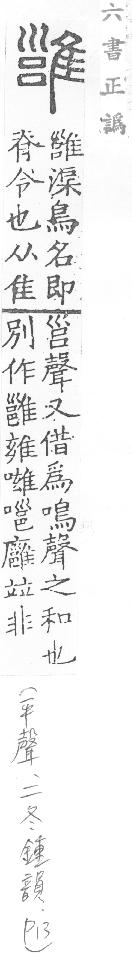 六書正譌
雝
雝渠鳥名即
脊令也从隹
邕聲又借爲鳴聲之和也
別作雝雍噰嗈廱竝非
(平聲、二冬鍾韻. P13)